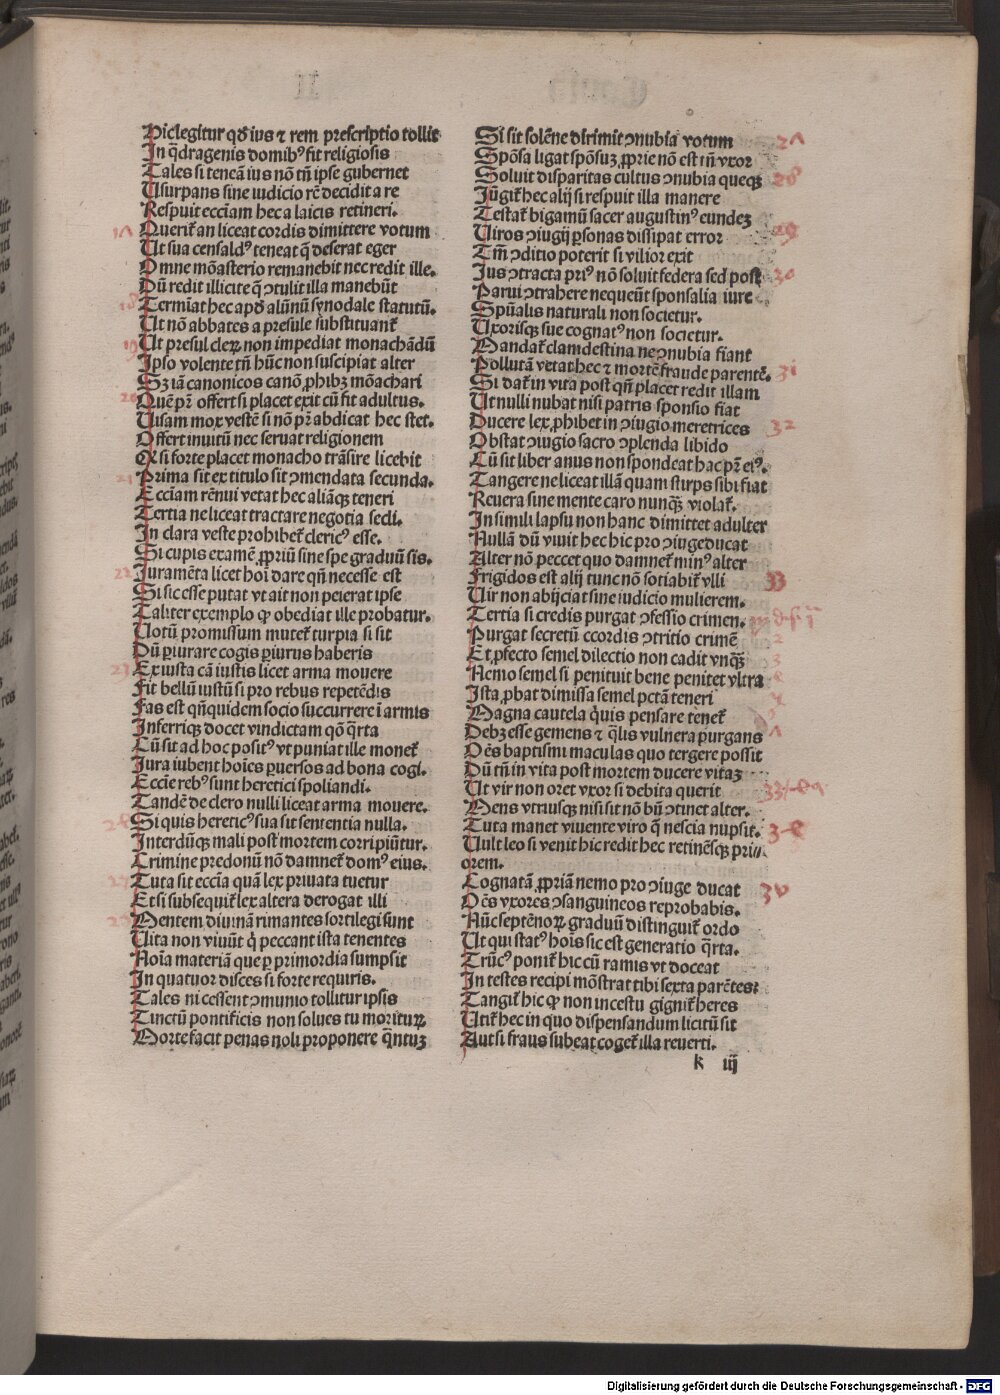 Hic legitur qd̄ ius ⁊ rem prescriptio tollit
In q̄dragenis domibꝰ fit religiosis
Tales si tenea̅ ius nō tn̄ ipse gubernet
Usurpans sine iudicio rē decidit a re
Respuit eccl̄iam hec a laicis retineri.
Querit̉ an liceat cordis dimittere votum
Ut sua censaldꝰ teneat q̄ deserat eger
Omne mōasterio remanebit nec redit ille.
Dū redit illicite q̄ ɔtulit illa manebūt
Termiat hec apd̄ alūnū synodale statutū.
Ut nō abbates a presule substituant̉
Ut presul cleꝝ non impediat monachādū
Ipso volente tn̄ hūc non suscipiat alter
Sꝫ iā canonicos canō ꝓhibꝫ mōachari
Quē pr̄ offert si placet exit cū fit adultus.
Uisam mox vestē si nō pr̄ abdicat hec stet.
Offert inuitū nec seruat religionem
Q̄ si forte placet monacho trāsire licebit
Prima sit ex titulo sit ɔmendata secunda.
Eccl̄iam rēnui vetat hec aliāqꝫ teneri
Tertia ne liceat tractare negotia secli.
In clara veste prohibet̉ clericꝰ esse.
Si cupis examē ꝓpriū sine spe graduū sis.
Iuramēta licet hoi̅ dare qn̄ necesse est
Si sic esse putat vt ait non peierat ipse
Taliter exemplo ꝙ obediat ille probatur.
Uotū promissum mutet̉ turpia si sit
Dū ꝑiurare cogis ꝑiurus haberis
Ex iusta cā iustis licet arma mouere
Fit bellū iustū si pro rebus repetēdis
Fas est qn̄quidem socio succurrere i̅ armis
Inferriqꝫ docet vindictam qō q̄rta
Cū sit ad hoc positꝰ vt puniat ille monet̉
Jura iubent hoi̅es ꝑuersos ad bona cogi.
Eccl̄ie rebꝰ sunt heretici spoliandi.
Tandē de clero nulli liceat arma mouere.
Si quis hereticꝰ sua sit sententia nulla.
Interdūqꝫ mali post mortem corripiūtur.
Crimine predonū nō damnet̉ domꝰ eius.
Tuta sit eccl̄ia quā lex priuata tuetur
Et si subsequit̉ lex altera derogat illi
Mentem diuinā rimantes sortilegi sunt
Uita non viuūt q̇ peccant ista tenentes
Noi̅a materiā que ꝑ primordia sumpsit
In quatuor disces si forte requiris.
Tales ni cessent ɔmunio tollitur ipsis
Tinctū pontificis non solues tu morituꝝ
Morte facit penas noli proponere q̄ntuꝫ
Si sit solēne dirimit ɔnubia votum
Spōsa ligat spōsuꝫ ꝓprie nō est in̄ vxor
Soluit disparitas cultus ɔnubia queqꝫ
Jūgit̉ hec alij si respuit illa manere
Testat̉ bigamū sacer augustinꝰ eundeꝫ
Uiros ɔiugij ꝑsonas dissipat error
Tn̄ ɔditio poterit si vilior exit
Jus ɔtracta priꝰ nō soluit federa sed post
Parui ɔtrahere nequeūt sponsalia iure
Spūalis naturali non societur.
Uxorisqꝫ sue cognatꝰ non societur.
Mandat̉ clamdestina ne ɔnubia fiant
Pollutā vetat hec ⁊ mortē fraude parentē.
Si dat̉ in vita post qn̄ placet redit illam
Ut nulli nubat nisi patris sponsio fiat
Ducere lex ꝓhibet in ɔiugio meretrices
Obstat ɔiugio sacro ɔplenda libido
Cū sit liber anus non spondeat hac pr̄ eiꝰ.
Tangere ne liceat illā quam stirps sibi fiat
Reuera sine mente caro nunqꝫ violat̉.
In simili lapsu non hanc dimittet adulter
Nullā dū viuit hec hic pro ɔiuge ducat
Alter nō peccet quo damnet̉ minꝰ alter
Frigidos est alij tunc nō sotiabit̉ vlli
Uir non abijciat sine iudicio mulierem.
Tertia si credis purgat ɔfessio crimen.
Purgat secretū ccordis ɔtritio crimē
Et ꝓfecto semel dilectio non cadit vnqꝫ̄
Nemo semel si penituit bene penitet vltra
Ista ꝓbat dimissa semel pctā teneri
Magna cautela q̇uis pensare tenet̉
Debꝫ esse gemens ⁊ q̄lis vulnera purgans
Oēs baptismi maculas quo tergere possit
Dū tn̄ in vita post mortem ducere vitaꝫ
Ut vir non oret vxor si debita querit
Mens vtriusqꝫ nisi sit nō bn̄ ɔtinet alter.
Tuta manet viuente viro q̄ nescia nupsit.
Uult leo si venit hic redit hec retinēsqꝫ pri⸗
orem.
Cognatā ꝓpriā nemo pro ɔiuge ducat
Oēs vxores ɔsanguineos reprobabis.
Nūc septēnoꝝ graduū distinguit̉ ordo
Ut qui statꝰ hoi̅s sic est generatio q̄rta.
Trūcꝰ ponit̉ hic cū ramis vt doceat
In testes recipi mōstrat tibi sexta parētes:
Tangit̉ hic ꝙ non incestu gignit̉ heres
Utit̉ hec in quo dispensandum licitū sit
Aut si fraus subeat coget̉ illa reuerti.
k iij
Digitalisierung gefördert durch die Deutsche Forschungsgemeinschaft - DFG